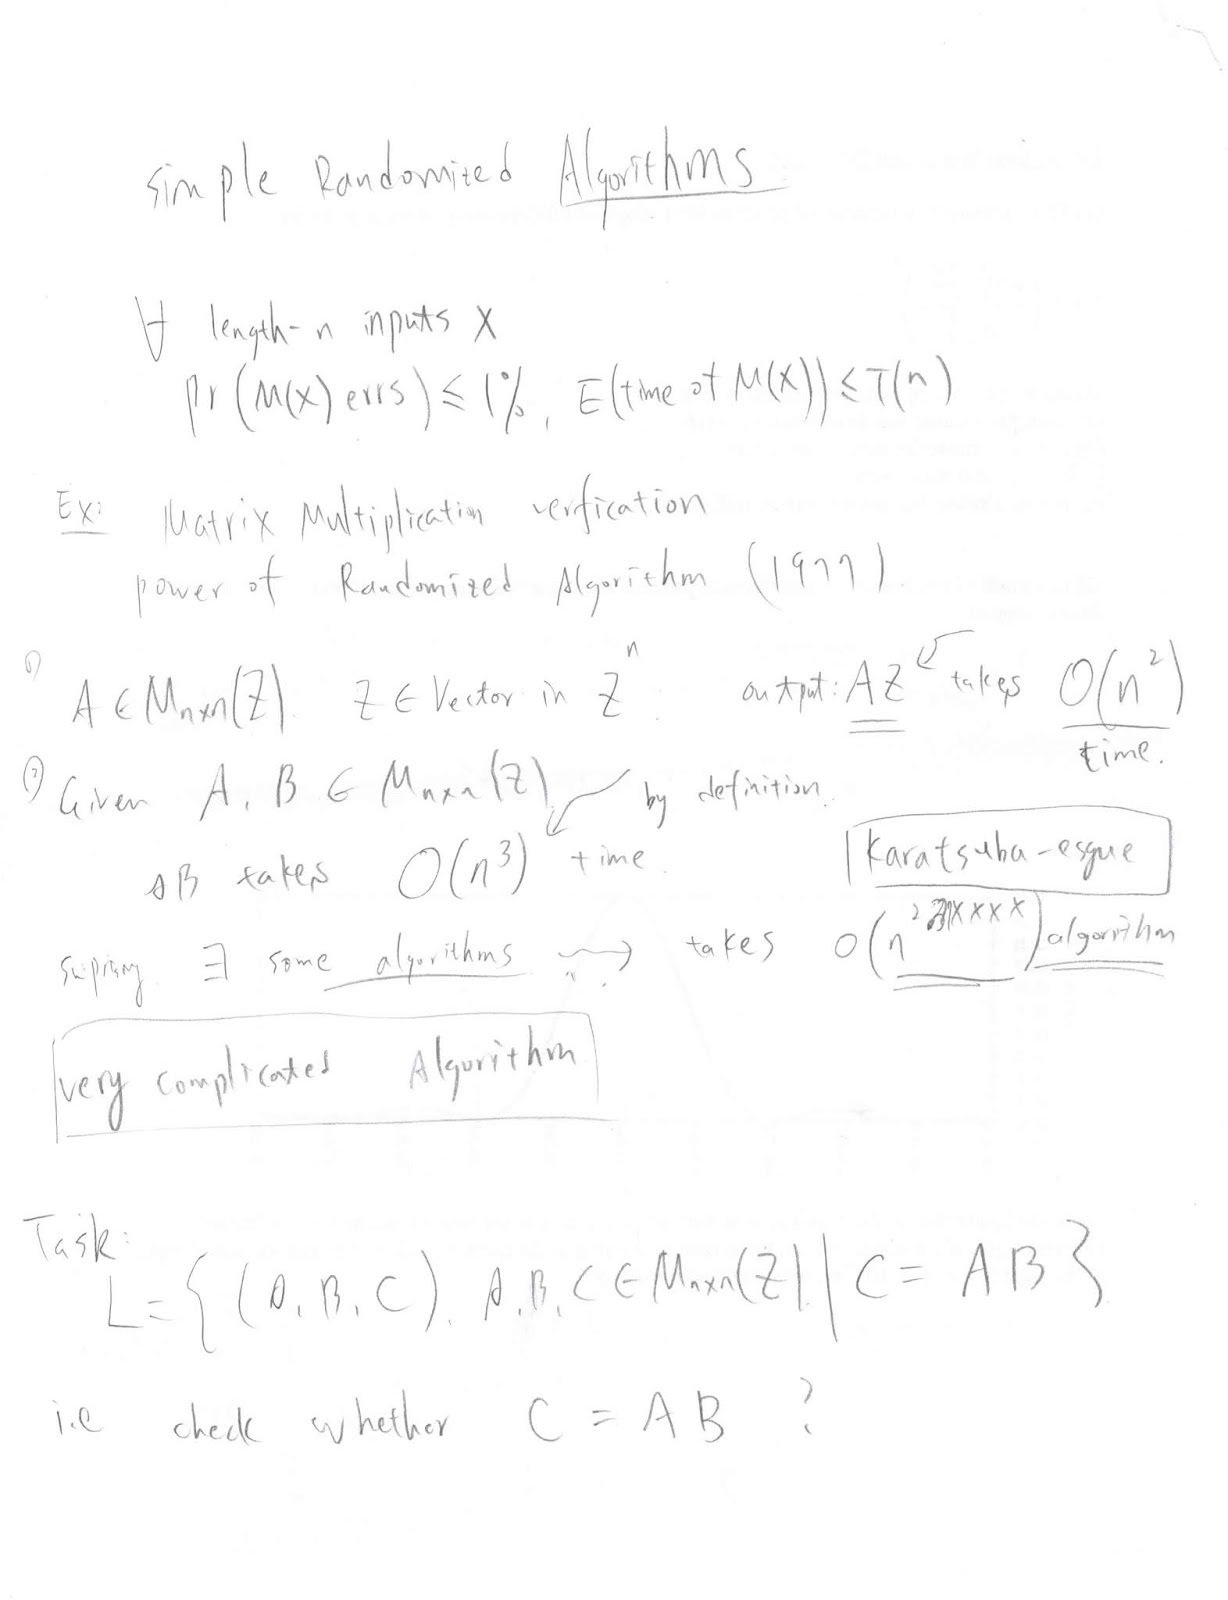 simple Randomized Algorithms
∀ length-n inputs X
Pr(M(X) errs) ≤ 1%, E(time of M(X)) ≤ T(n)
Ex: Matrix Multiplication verfication
power of Randomized Algorithm (1977)
① A ∈ Mnxn(Z). Z ∈ Vector in Z^n. output: AZ takes O(n²) time.
② Given A, B ∈ Mnxn(Z) by definition.
AB takes O(n³) time.
Karatsuba-esque
∃ some algorithms takes O(n^2.xxxx) algorithm
very complicated Algorithm
Task:
L = {(A, B, C), A, B, C ∈ Mnxn(Z) | C = AB}
i.e check whether C = AB ?